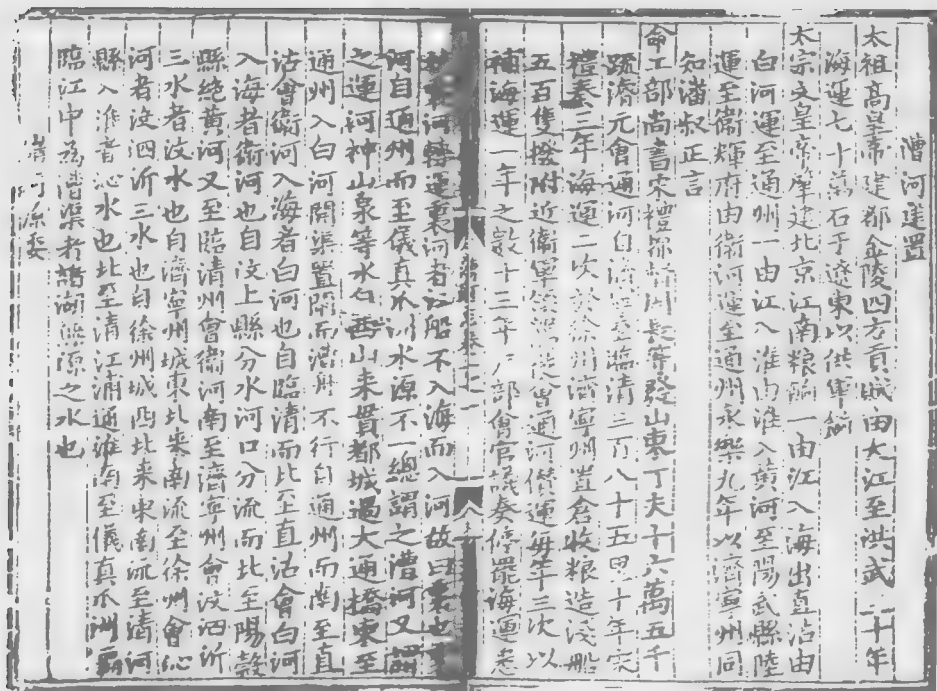 漕河建置
太祖高皇帝建都金陵四方貢賦由大江至洪武三十年
海運七十萬石于遼東以供軍餉
太宗文皇帝肇建北京江南粮餉一由江入海出直沽由
白河運至通州一由江入淮由淮入黃河至陽武縣陸
運至衛輝府由衛河運至通州永樂九年以濟寧州同
知潘叔正言
命工部尚書宋禮都督周長等發山東丁夫十六萬五千
疏濬元會通河自濟寧至臨清三百八十五里十年宋
禮奏三年海運二次於徐州濟寧州置倉收粮造淺船
五百隻撥附近衛軍
從會通河儹運每年三次以
補海運一年之數十三年
部會官議奏停罷海運悉
河轉運裏河者
船不入海而入河故曰裏也
河自通州而至儀真瓜洲水源不一總謂之漕河又謂
之運河神山泉等水
西山来貫都城過大通橋東至
通州入白河開渠置閘而漕舟不行自通州而南至直
沽會衛河入海者白河也自臨清而北至直沽會白河
入海者衛河也自汶上縣分水河口分流而北至陽穀
縣繞黃河又至臨清州會衛河南至濟寧州會汶泗沂
三水者汶水也自濟寧州城東北来南流至徐州會沁
河者汶泗沂三水也自徐州城西北来東南流至清河
縣入淮者沁水也北至清江浦通淮南至儀真瓜洲
臨江中為漕渠者諸湖無源之水也
漕河源委